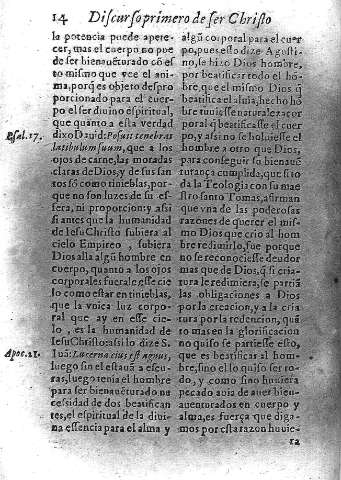 14 Discurso primero de ser Christo
la potencia puede apete-
cer, mas el cuerpo no pue
de ser bienaueturado cõ es
to mismo que vee el ani-
ma, porq̃ es objeto despro
porcionado para el cuer-
po el ser diuino espiritual,
que quanto a esta verdad
Psal. 17.
dixo Dauid: Posuit tenebras
latibulum suum, que a los
ojos de carne, las moradas
claras de Dios, y de sus san
tos sõ como tinieblas, por-
que no son luzes de su es-
fera, ni proporcion: y assi
si antes que la humanidad
de Iesu Christo subiera al
cielo Empireo, subiera
Dios alla algũ hombre en
cuerpo, quanto a los ojos
corporales fuera le esse cie
lo como estar en tinieblas,
que la vnica luz corpo-
ral que ay en esse cie-
lo, es la humanidad de
Iesu Christo: assi lo dize S.
Apoc. 21.
Iuã: Lucerna eius est agnus,
luego sin el estauã a escu-
ras, luego tenia el hombre
para ser bienauẽturado ne
cessidad de dos beatifican
tes, el espiritual de la diui-
na essencia para el alma y
algũ corporal para el cuer
po, pues esso dize Agusti-
no, se hizo Dios hombre,
por beatificar todo el hõ-
bre, que el mismo Dios q̃
beatifica el alma, hecho hõ
bre tuuiesse naturaleza cor
poral q̃ beatificasse el cuer
po, y assi no se boluiesse el
hombre a otro que Dios,
para conseguir su bienauẽ
turança cumplida, que si to
da la Teologia con su mae
stro santo Tomas, afirman
que vna de las poderosas
razones de querer el mis-
mo Dios que crio al hom
bre redimirlo, fue porque
no se reconociesse deudor
mas que de Dios, q̃ si cria-
tura le redimiera, se partiã
las obligaciones a Dios
por la creacion, y a la cria
tura por la redencion, quã
to mas en la glorificacion
no quiso se partiesse esto,
que es beatificas al hom-
bre, sino el lo quiso ser ro-
do, y como sino huniera
pecado auia de auer bien-
auenturados en cuerpo y
alma, es fuerça que diga-
mos por esta razon huuie-
ra